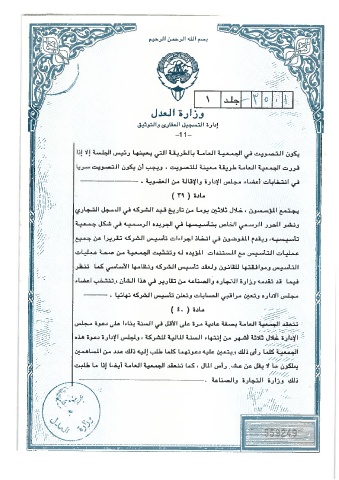 بسم الله الرحمن الرحيم
جلد ١
وزارة العدل
إدارة التسجيل العقاري والتوثيق
-٤١-
يكون التصويت في الجمعية العامة بالطريقة التي يعينها رئيس الجلسة إلا إذا
قررت الجمعية العامة طريقة معينة للتصويت . ويجب أن يكون التصويت سريا
في انتخابات أعضاء مجلس الإدارة والإقالة من العضوية .
مادة ( ٣٩ )
يجتمع المؤسسون ، خلال ثلاثين يوما من تاريخ قيد الشركه في السجل التجاري
ونشر المحرر الرسمي الخاص بتأسيسها في الجريده الرسميه في شكل جمعية
تأسيسيه ، ويقدم المفوضون في اتخاذ اجراءات تأسيس الشركه تقريرا عن جميع
عمليات التأسيس مع المستندات المؤيده له وتتثبت الجمعية من صحة عمليات
التأسيس وموافقتها للقانون ولعقد تأسيس الشركه ونظامها الأساسي كما تنظر
فيما قد تقدمه وزارة التجاره والصناعه من تقارير في هذا الشأن ، وتنتخب أعضاء
مجلس الاداره وتعين مراقبي الحسابات وتعلن تأسيس الشركه نهائيا .
مادة ( ٤٠ )
تنعقد الجمعية العامة بصفة عادية مرة على الأقل في السنة بناءا على دعوة مجلس
الإدارة خلال ثلاثة أشهر من إنتهاء السنة المالية للشركة . ولمجلس الإدارة دعوة هذه
الجمعية كلما رأى ذلك ويتعين عليه دعوتهما كلما طلب إليه ذلك عدد من المساهمين
يملكون ما لا يقل عن عشر رأس المال ، كما تنعقد الجمعية العامة أيضا إذا ما طلبت
ذلك وزارة التجارة والصناعة .
وزارة العدل
559249